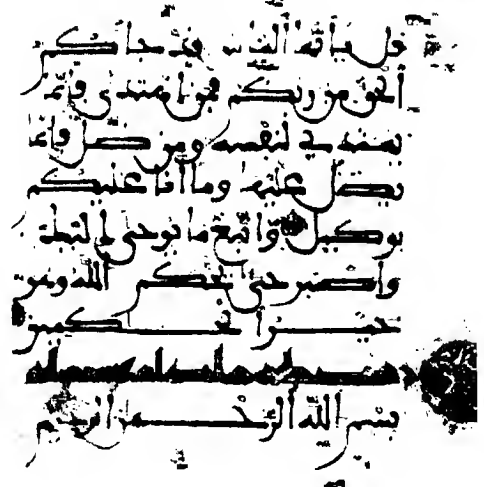 قل يأيها الناس قد جاكم
الحق من ربكم فمن اهتدى فإنما
يهتدي لنفسه ومن ضل فإنما
يضل عليها وما أنا عليكم
بوكيل واتبع ما يوحى إليك
واصبر حتى يحكم الله وهو
خير الحكمين
بسم الله الرحمن الرحيم